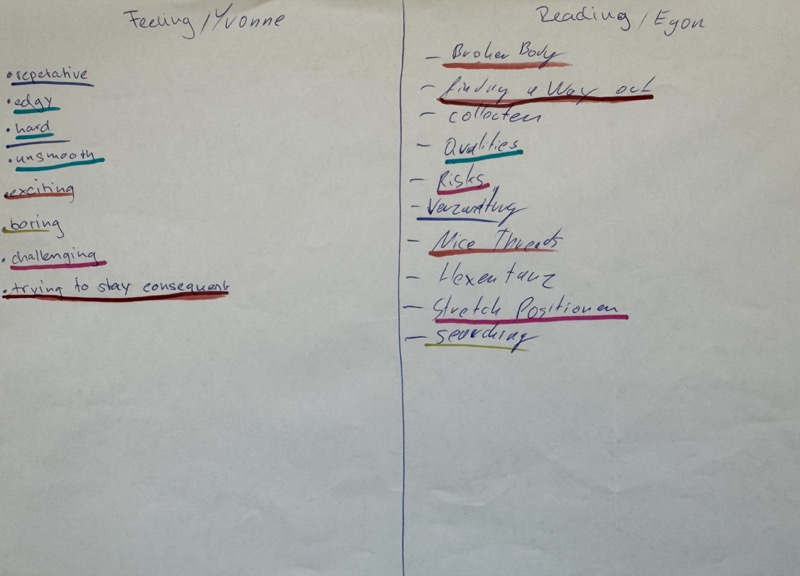 Feeling / Yvonne
• repetative
• edgy
• hard
• unsmooth
• exciting
• boring
• challenging
• trying to stay consequent
Reading / Egon
- Broken Body
- finding a Way out
- collecten
- Qualities
- Risks
- Nice Threads
- Hexentanz
- Stretch Positionen
- searching